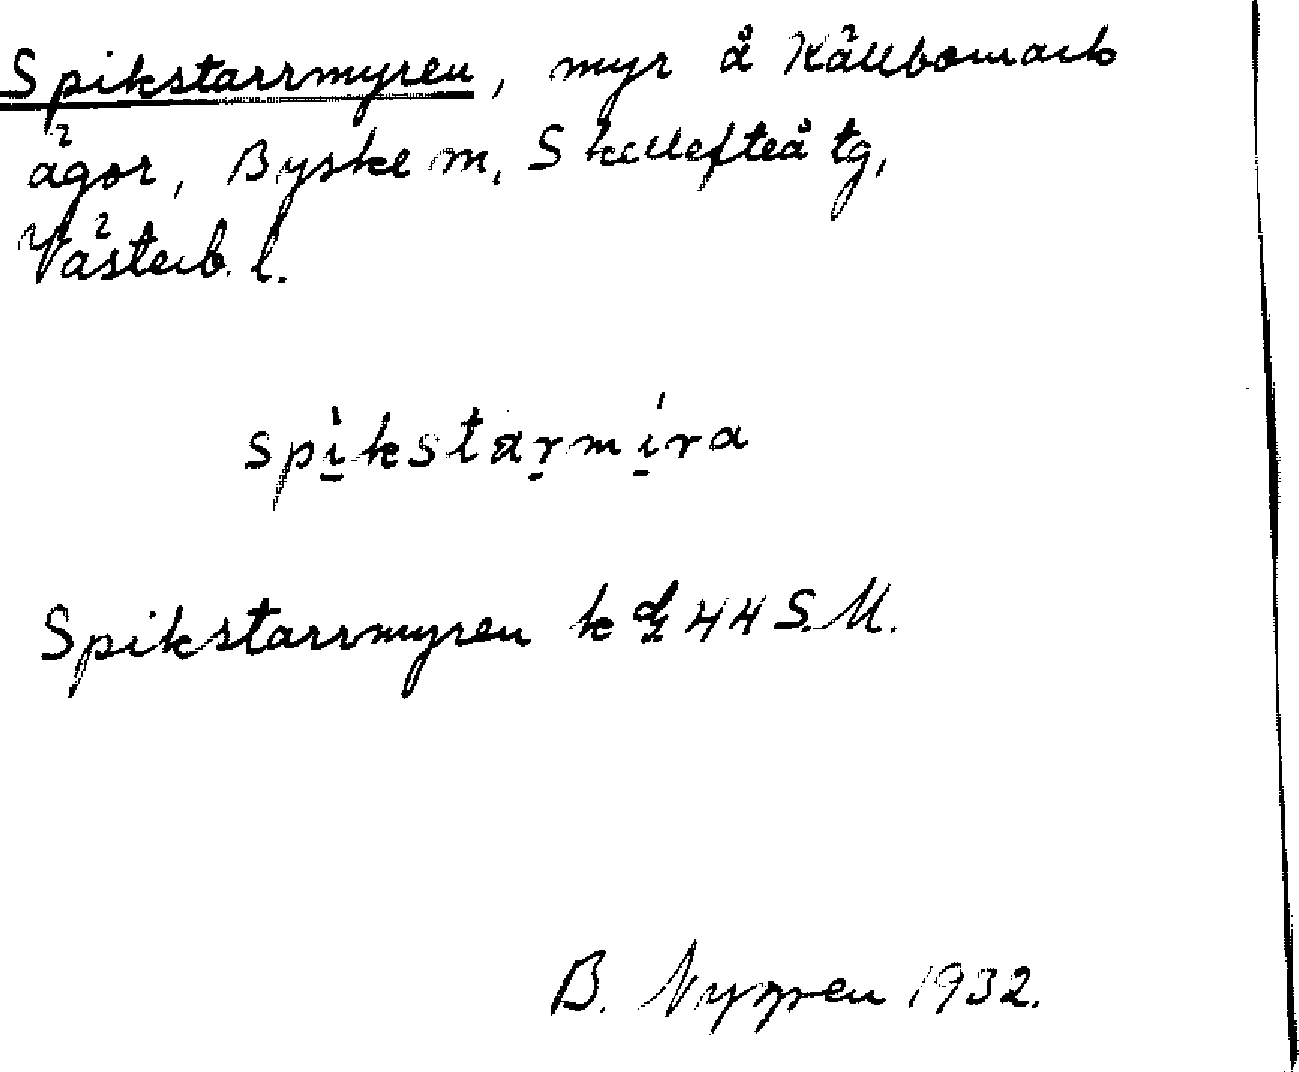 Spikstarrmyren, myr å Källbomarks
ägor, Byske sn, Skellefteå tg,
Västerb. l.
spi̱kstaṛmi̱ra
Spikstarrmyren k 44 S.M.
B. Nygren 1932.